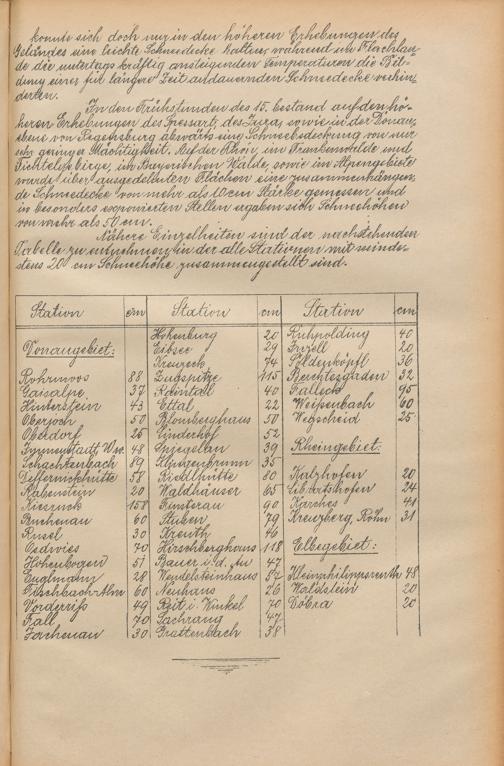 konnte sich doch nur in den höheren Erhebungen des
Geländes eine leichte Schneedecke halten, während im Flachlan-
de die untertags kräftig ansteigenden Temperaturen die Bil-
dung einer für längere Zeit andauernden Schneedecke verhin-
derten.
In den Frühstunden des 15. bestand auf den hö-
heren Erhebungen des Spessart, des Jura, sowie in der Donau-
ebene von Regensburg abwärts eine Schneebedeckung von nur
sehr geringer Mächtigkeit. Auf der Rhön, im Frankenwalde und
Fichtelgebirge, im Bayerischen Walde, sowie im Alpengebiete
wurde über ausgedehnten Flächen eine zusammenhängen-
de Schneedecke von mehr als 10 cm Stärke gemessen und
in besonders exponierten Stellen ergaben sich Schneehöhen
von mehr als 50 cm.
Nähere Einzelheiten sind der nachstehenden
Tabelle zu entnehmen, in der alle Stationen mit minde-
stens 20 cm Schneehöhe zusammengestellt sind.
Station cm Station cm Station cm
Hohenburg 20 Ruhpolding 40
Donaugebiet: Eibsee 29 Inzell 20
Kreuzeck 74 36
Rohrmoos 88 Zugspitze 115 Berchtesgaden 32
Gaisalpe 37 40 Falleck 95
Hinterstein 43 Ettal 22 Weißenbach
Oberjoch 50 Blomberghaus 50 Wegscheid 25
Obsdorf 25 Linderhof 52
Immenstadt, 48 Spiegelau 39 Rheingebiet:
Schachtenbach 89 Klingenbrunn 35
58 80 Kalzhofen 20
Rabenstein 20 Waldhäuser 65 24
158 Finsterau 90 41
Buchenau 60 Stuben 79 Kreuzberg, Rhön 31
Rusel 30 Kreuth 46
70 Hirschberghaus 118 Elbegebiet:
Hohenbogen 51 Bauer i. d. Au 47
Englmann 28 Wendelsteinhaus 87 Kleinphilippsreuth 48
Fischbach-Alm 60 Neuhaus 26 Waldstein 20
Vorderriß 49 Reit i. Winkel 70 Döbra 20
Fall 70 Sachrang 47
Jachenau 30 Grattenbach 38